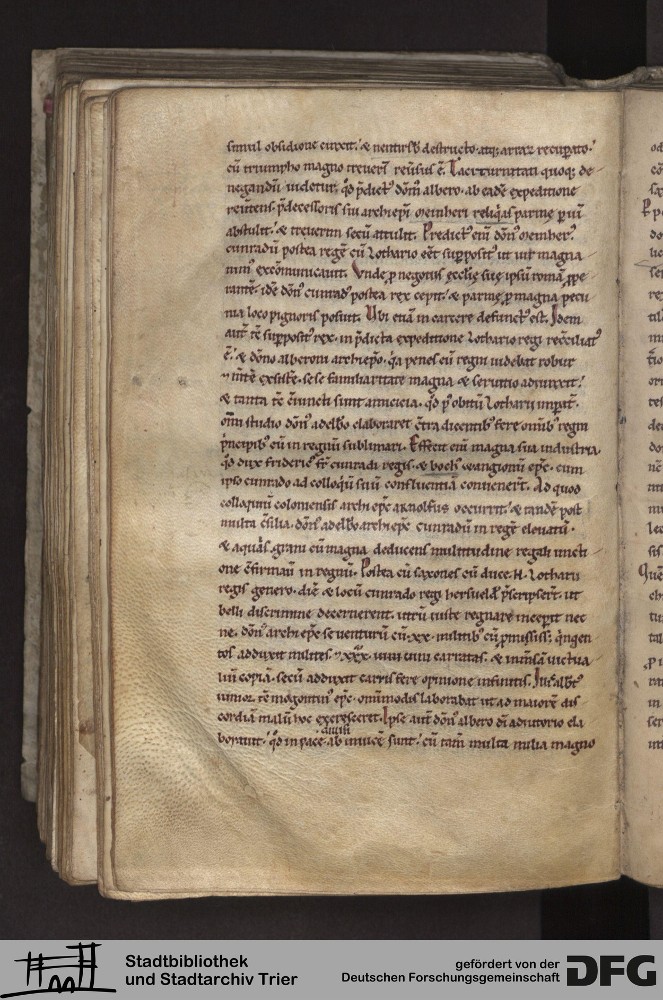 simul obsidione cinxit. & nentirisb; destructo. atq; arrar recuperato.
cū triumpho magno treuerī reūsus ē. Taciturnitati quoq; de
negandū uidetur, qd p̄dict' dom̄ albero. ab eadē expeditione
reūtens. p̄decessoris sui archiepī meinheri reliq̄as parme
abstulit. & treuerim secū attulit. Predict' eni dōn' meinher'
cunradū postea regē cū Lothario eēt supposit' ut uir magna
nim' excōmunicauit. Vnde p negotiis ecclię suę ipsū romā ppe
rantē. idē dōn' cunrad' postea rex cepit. & parmę p magna pecu
nia loco pignoris posuit. Vbi etiā in carcere defunct' est. Idem
aut tē supposit' rex. in p̄dicta expeditione Lothario regi recōciliat'
ē. & dōno alberoni archiepō. q̄a penes eū regni uidebat robur
existē. sese familiaritate magna & seruitio adiunxit.
& tanta tē c̄iuncti sunt amicicia. qd p' obitū Lotharii imp̄at.
om̄i studio dōn' adelbō elaboraret c̄tra dicentib' fere omib' regni
p̄ncipib' eū in regnū sublimari. Effecit eni magna sua industria.
qd dux frideric' fr̄ cunradi regis. & bocħ wangionū epc. cum
ipso cunrado ad colloq̄ū suū confluentiā conuenert. Ad quod
colloquiū coloniensis archiepc arnolfus occurrit. & tandē post
multa c̄silia. dōn' adelbō archiepc cunradū in regē eleuatū.
& aquas grani cū magna deducens multitudine regali uncti
one c̄firmauī in regnū. Postea cū saxones cū duce. H. Lotharii
regis genero. diē & locū cunrado regi hersueldī p̄scripsert. ut
belli discrimine decernerent. utrū iuste regnare inceperit nec
ne. dōn' archiepc se uenturū cū. xx. militib' cū pmisisset. qngen
tos adduxit milites. carratas. & inm̄sā uictua
liū copiā. secū adduxit carris fere opinione infinitis. Sed albt'
iunior. tē mogontin' epc. omimodis laborabat ut ad maiorē dis
cordiā malū hoc excresceret. Ipse aut dōn' albero dī adiutorio ela
borauit. qd in pace diuisi ab inuicē sunt. cū tam multa milia magno
Stadtbibliothek
und Stadtarchiv Trier
gefördert von der
Deutschen Forschungsgemeinschaft
DFG